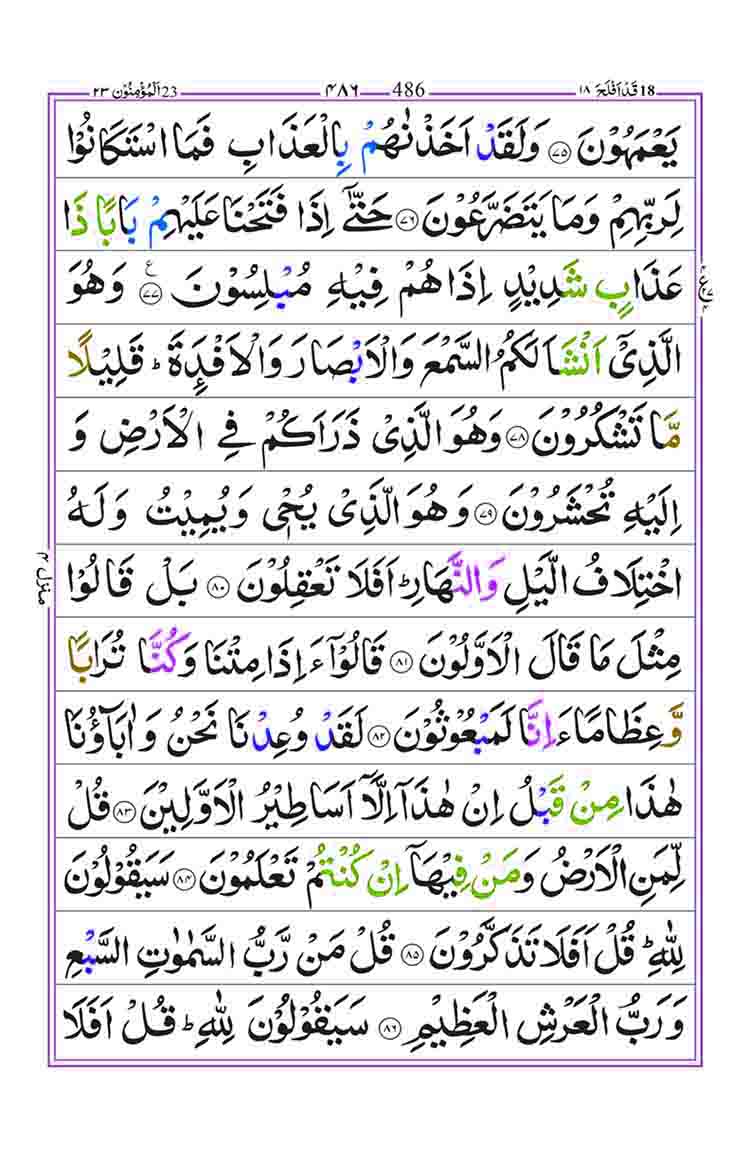 18 قَدْ اَفْلَحَ ١٨ 486 ٤٨٦ 23 اَلْمُؤْمِنُوْن ٢٣
يَعْمَهُوْنَ ۝٧٥ وَلَقَدْ اَخَذْنٰهُمْ بِالْعَذَابِ فَمَا اسْتَكَانُوْا
لِرَبِّهِمْ وَمَا يَتَضَرَّعُوْنَ ۝٧٦ حَتّٰٓى اِذَا فَتَحْنَا عَلَيْهِمْ بَابًا ذَا
عَذَابٍ شَدِيْدٍ اِذَا هُمْ فِيْهِ مُبْلِسُوْنَ ۝٧٧ ع وَهُوَ
الَّذِيْٓ اَنْشَاَ لَكُمُ السَّمْعَ وَالْاَبْصَارَ وَالْاَفْـِٕدَةَ ؕ قَلِيْلًا
مَّا تَشْكُرُوْنَ ۝٧٨ وَهُوَ الَّذِيْ ذَرَاَكُمْ فِي الْاَرْضِ وَ
اِلَيْهِ تُحْشَرُوْنَ ۝٧٩ وَهُوَ الَّذِيْ يُحْيٖ وَيُمِيْتُ وَلَهُ
اخْتِلَافُ الَّيْلِ وَالنَّهَارِ ؕ اَفَلَا تَعْقِلُوْنَ ۝٨٠ بَلْ قَالُوْا
مِثْلَ مَا قَالَ الْاَوَّلُوْنَ ۝٨١ قَالُوْٓا ءَاِذَا مِتْنَا وَكُنَّا تُرَابًا
وَّعِظَامًا ءَاِنَّا لَمَبْعُوْثُوْنَ ۝٨٢ لَقَدْ وُعِدْنَا نَحْنُ وَاٰبَآؤُنَا
هٰذَا مِنْ قَبْلُ اِنْ هٰذَآ اِلَّآ اَسَاطِيْرُ الْاَوَّلِيْنَ ۝٨٣ قُلْ
لِّمَنِ الْاَرْضُ وَمَنْ فِيْهَآ اِنْ كُنْتُمْ تَعْلَمُوْنَ ۝٨٤ سَيَقُوْلُوْنَ
لِلّٰهِ ؕ قُلْ اَفَلَا تَذَكَّرُوْنَ ۝٨٥ قُلْ مَنْ رَّبُّ السَّمٰوٰتِ السَّبْعِ
وَرَبُّ الْعَرْشِ الْعَظِيْمِ ۝٨٦ سَيَقُوْلُوْنَ لِلّٰهِ ؕ قُلْ اَفَلَا
منزل ٤